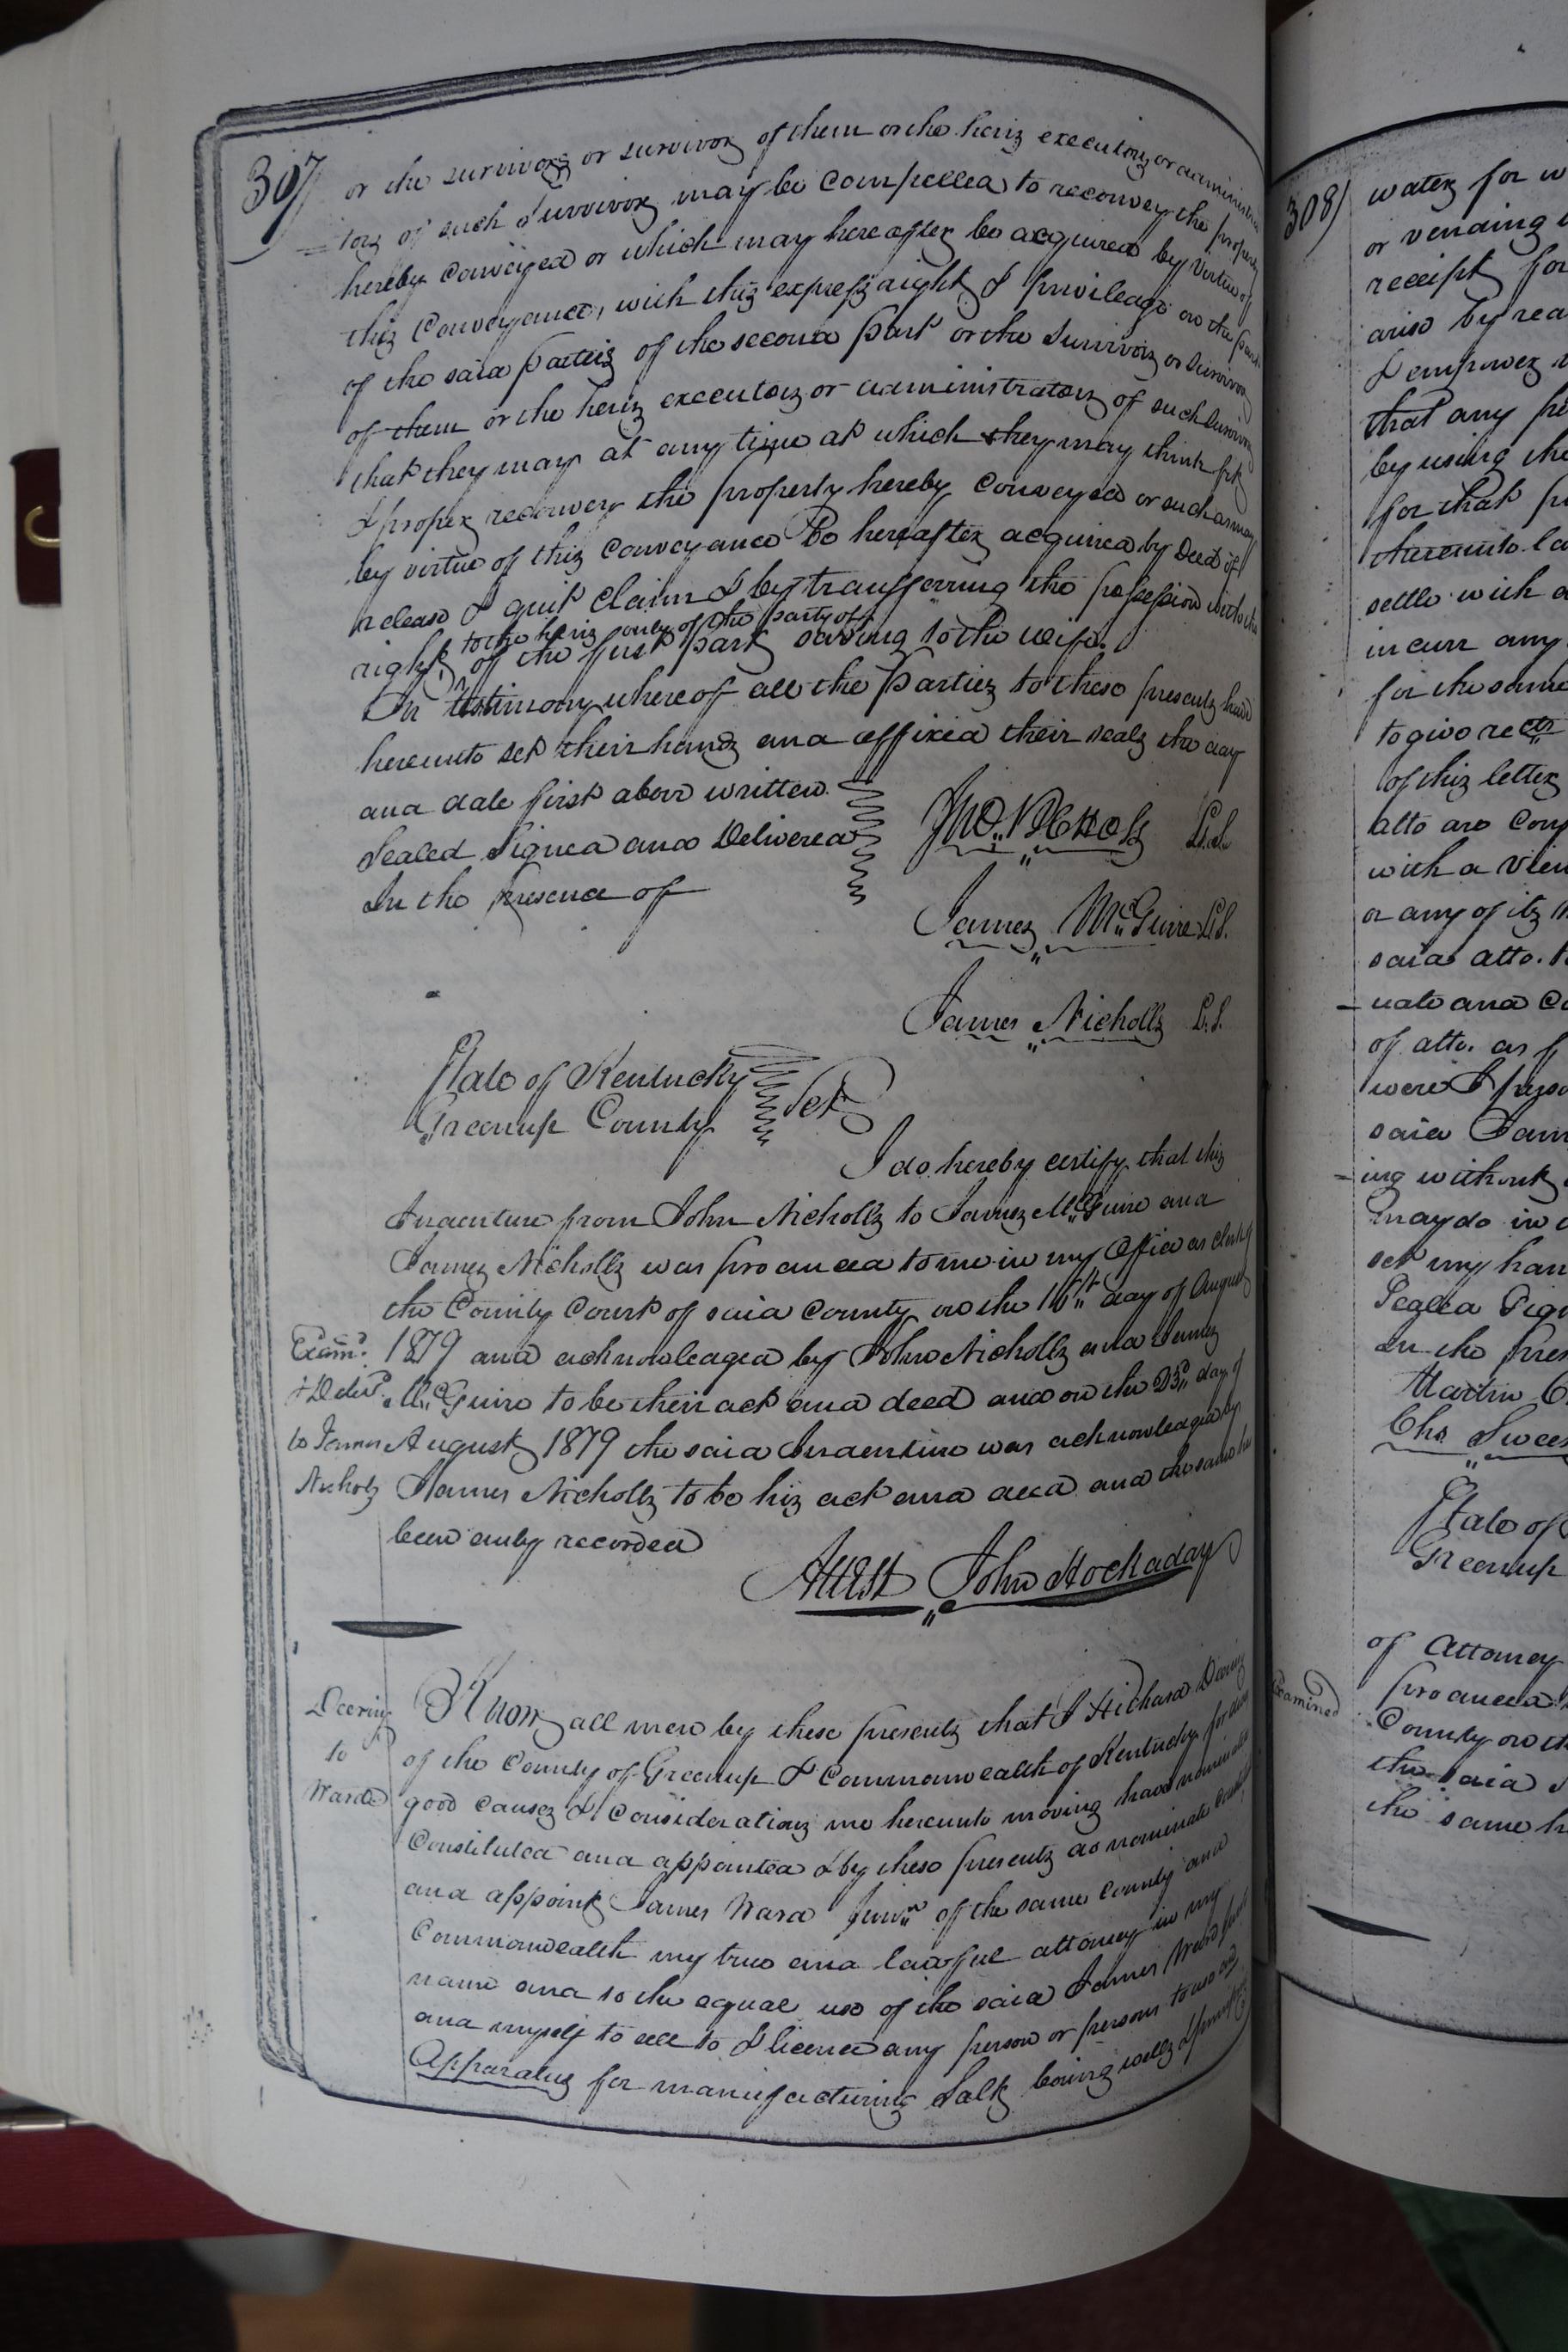 307/
or the survivors or survivor of them or the heirs executors or administra
tors of such Survivors may be compelled to reconvey the property
hereby conveyed or which may hereafter be acquired by virtue of
this Conveyance, with this express right & privilege on the part
of the said parties of the second part or the Survivors or Survivor
of them or the heirs executors or administrators of such Survivor
that they may at any time at which they may think fit
& proper reconvey the property hereby Conveyed or such as may
by virtue of this conveyance be hereafter acquired by Deed of
release & quit Claim & by transferring the possession with the
to the heirs only of the party of
right, of the first part saving to the wife.
In testimony whereof all the parties to these presents have
hereunto set their hands and affixed their seals the day
and date first above written
Sealed Signed and Delivered
In the presence of
Jno. Nicholls L.S.
James McGuire L.S.
James Nicholls L.S.
State of Kentucky
Greenup County Sct
I do hereby certify that this
Indenture from John Nicholls to James McGuire and
James Nicholls was produced to me in my Office as clerk of
the County Court of said County on the 16th day of August
1819 and acknowledged by John Nicholls and James
McGuire to be their act and deed and on the 23d day of
August 1819 the said Indenture was acknowledged by
James Nicholls to be his act and deed and the same has
been duly recorded
Examd.
& Delivd.
to James
Nichols
Attest John Hockaday
Deering
to
Ward
Know all men by these presents that I Richard Deering
of the County of Greenup & Commonwealth of Kentucky for divers
good causes & Considerations me hereunto moving have nominated
Constituted and appointed & by these presents do nominate constitute
and appoint James Ward Junr. of the same County and
Commonwealth my true and lawful attorney in my
name and to the equal use of the said James Ward
and myself to sell to & licence any person or persons to use
Apparatus for manufacturing Salt boring wells &
308/
water for
or vending
receipt for
arise by
& empower
that any
by using the
for that
thereunto
settle with
incurr any
for the same
to give rects
of this letter
atto are
with a view
or any of its
said atto.
nate and
of atto. as
were I
said
ing without
may do in
set my
Sealed
In the
Martin
Chs.
State of
Greenup
Examined
of Attorney
produced
County on the
the said
the same